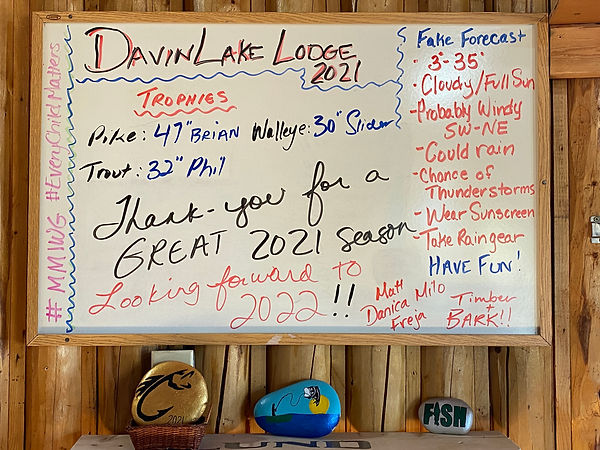 DAVIN LAKE LODGE
2021
TROPHIES
Pike: 47" BRIAN Walleye: 30" Slider
Trout: 32" Phil
Thank-you for a
GREAT 2021 season
Looking forward to
2022!!
Matt
Danica Milo
Freja
Timber
+
BARK!!
Fake Forecast
- 3°-35°
- Cloudy/Full Sun
- Probably Windy
SW-NE
- Could rain
- Chance of
Thunderstorms
- Wear Sunscreen
- Take Raingear
HAVE FUN!
# MMIWG #EveryChildMatters
2021
FISH